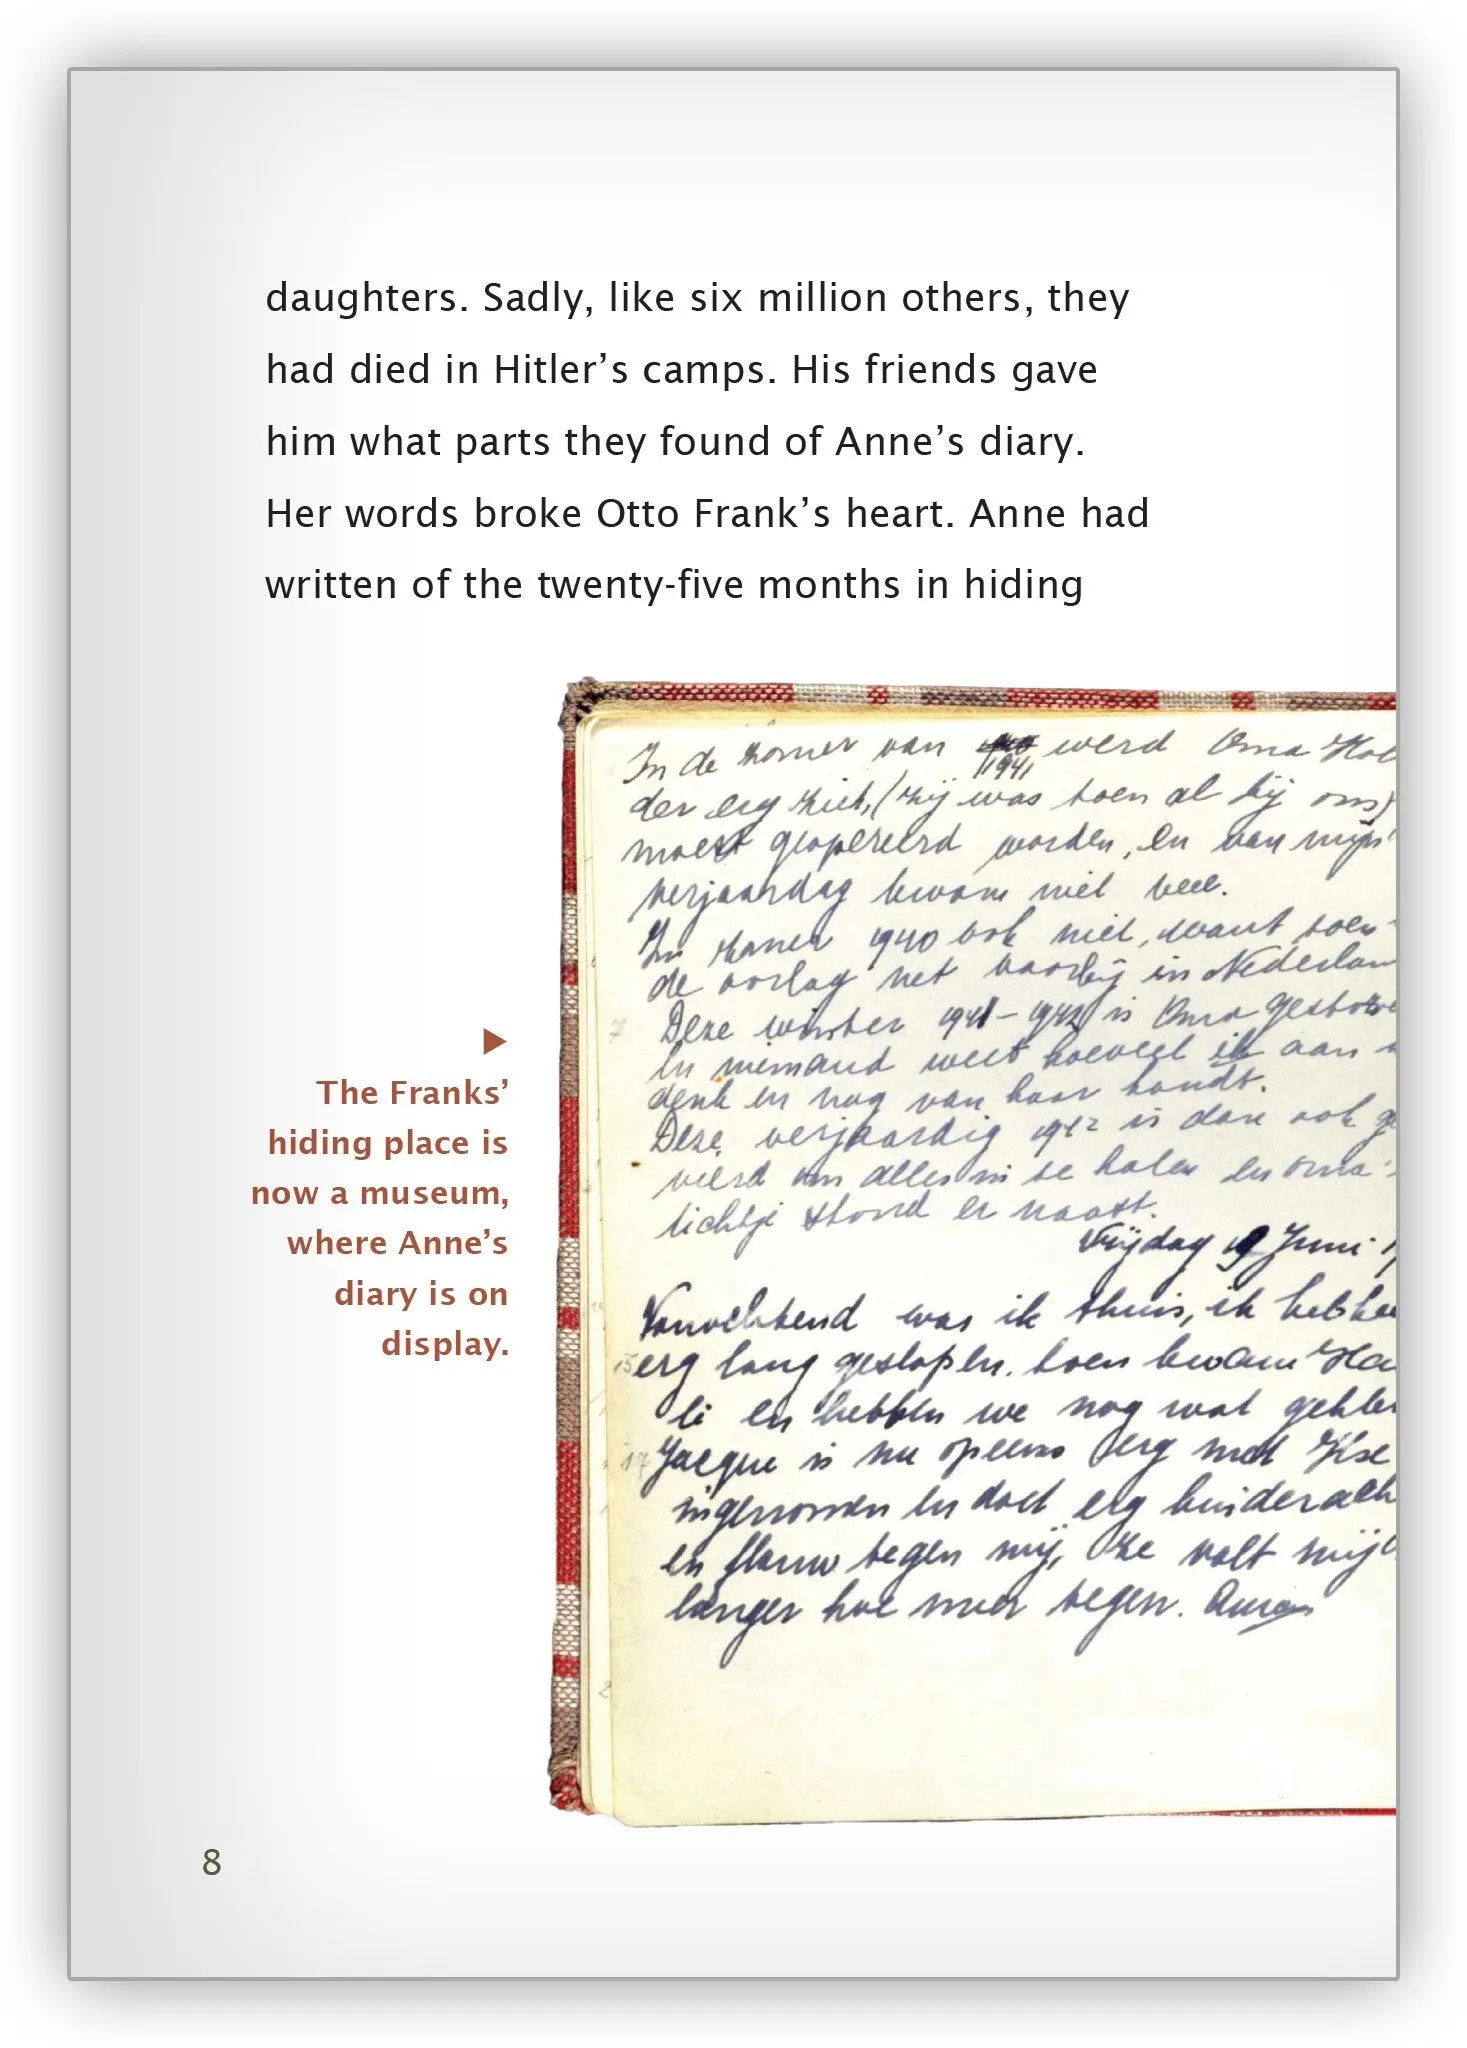 daughters. Sadly, like six million others, they
had died in Hitler’s camps. His friends gave
him what parts they found of Anne’s diary.
Her words broke Otto Frank’s heart. Anne had
written of the twenty-five months in hiding
▶
The Franks’
hiding place is
now a museum,
where Anne’s
diary is on
display.
In de zomer van 1941 werd Oma Hol
der erg ziek, (zij was toen al bij ons)
moest geopereerd worden, en van mijn
verjaardag kwam niet veel.
In zomer 1940 ook niet, want toen
de oorlog net voorbij in Nederlan
Deze winter 1941-1942 is Oma gestorve
En niemand weet hoeveel ik aan
denk en nog van haar houdt.
Deze verjaardig 1942 is dan ook ge
vierd om alles in te halen en oma
lichtje stond er naast.
Vrijdag 19 Juni 1
Vanochtend was ik thuis, ik heb
erg lang geslapen. toen kwam Ha
li en hebben we nog wat geklet
Jacque is nu opeens erg met Ilse
ingenomen en doet erg kinderach
en flauw tegen mij, ze valt mij
langer hoe meer tegen.
8